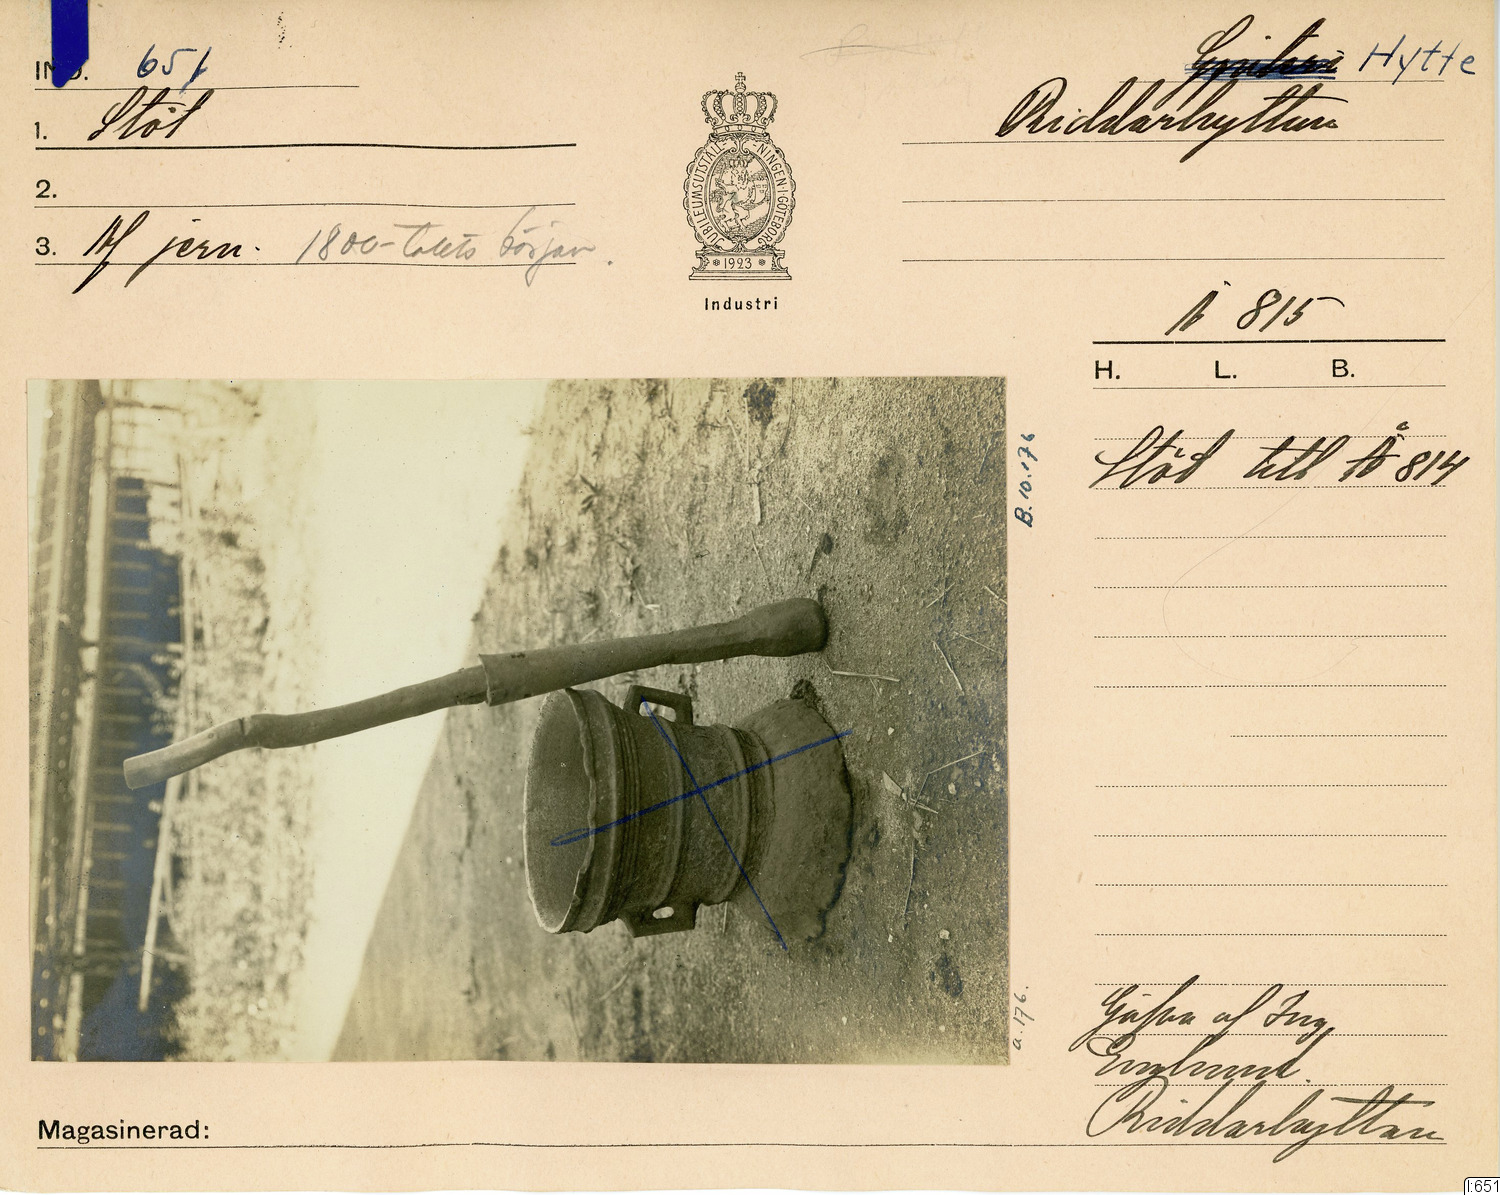 IND. 651
Hytte
1. Stöt
Riddarhyttan
2.
3. Af jern. 1800-talets början.
JUBILEUMSUTSTÄLLNINGEN·I·GÖTEBORG
1923
Industri
Å 815
H. L. B.
Stöt till Å 814
B.10.176
a.176.
Gåfva af Ing.
Englund.
Riddarhyttan
Magasinerad:
I:651